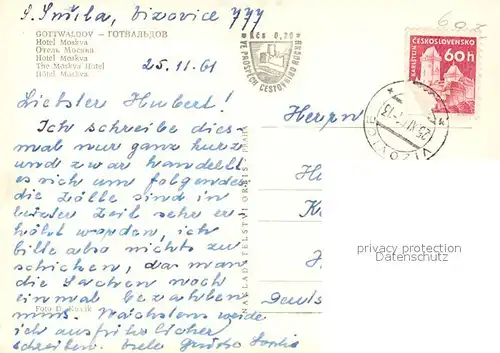 S. Smíla, Vizovice 777
GOTTWALDOV — ГОТВАЛЬДОВ
Hotel Moskva
Отель Москва
Hotel Moskva
The Moskva Hotel
Hôtel Moskva
25.11.61
Kčs 0,20
VE PROSPĚCH CESTOVNÍHO RUCHU
60h
KARLŠTEJN
ČESKOSLOVENSKO
60 h
VIZOVICE
Liebster Hubert!
Ich schreibe dies-
mal nur ganz kurz
und zwar handelt
es sich um folgendes
die Zölle sind in
letzter Zeit sehr er-
höht worden, ich
bitte also nichts zu
schicken, da man
die Sachen noch
einmal bezahlen
muss. Nächstens werde
ich ausführlicher
schreiben. Viele Grüße Sophie
Foto D.
NAKLADATELSTVÍ ORBIS PRAHA
Herrn
H
K
H
Deuts
privacy protection
Datenschutz